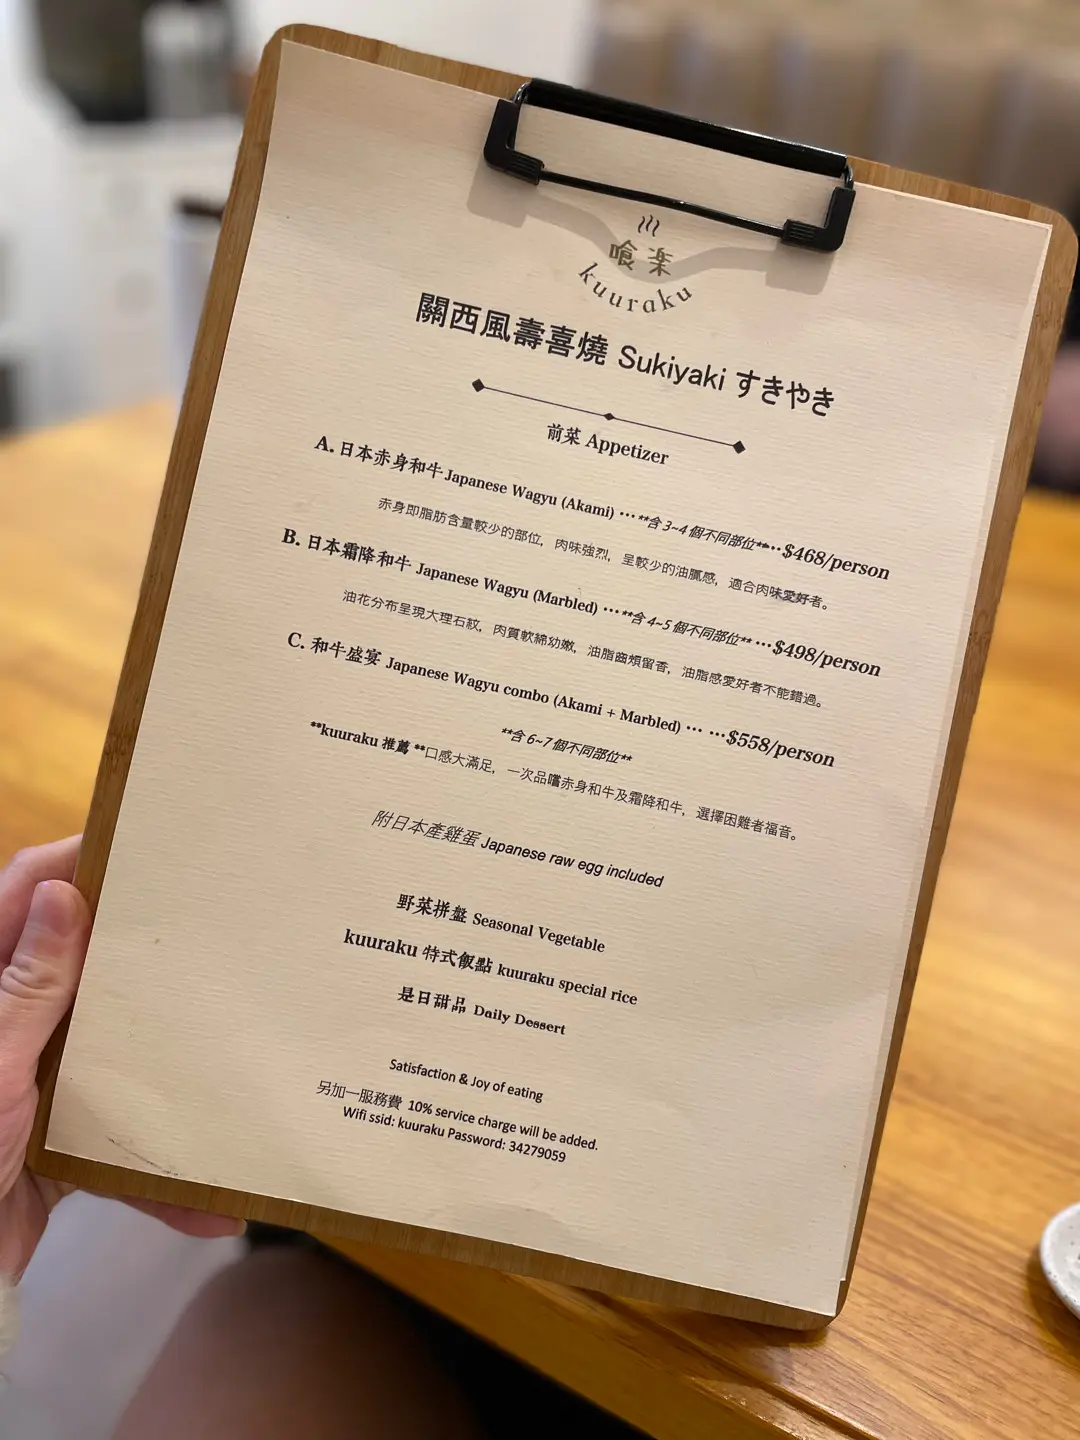 喰楽
kuuraku
關西風壽喜燒 Sukiyaki すきやき
前菜 Appetizer
A. 日本赤身和牛 Japanese Wagyu (Akami) ⋯ **含 3~4 個不同部位** ⋯ $468/person
赤身即脂肪含量較少的部位，肉味強烈，呈較少的油膩感，適合肉味愛好者。
B. 日本霜降和牛 Japanese Wagyu (Marbled) ⋯ **含 4~5 個不同部位** ⋯ $498/person
油花分布呈現大理石紋，肉質軟綿幼嫩，油脂齒頰留香，油脂感愛好者不能錯過。
C. 和牛盛宴 Japanese Wagyu combo (Akami + Marbled) ⋯ ⋯ $558/person
**含 6~7 個不同部位**
**kuuraku 推薦 **口感大滿足，一次品嚐赤身和牛及霜降和牛，選擇困難者福音。
附日本產雞蛋 Japanese raw egg included
野菜拼盤 Seasonal Vegetable
kuuraku 特式飯點 kuuraku special rice
是日甜品 Daily Dessert
Satisfaction & Joy of eating
另加一服務費 10% service charge will be added.
Wifi ssid: kuuraku Password: 34279059